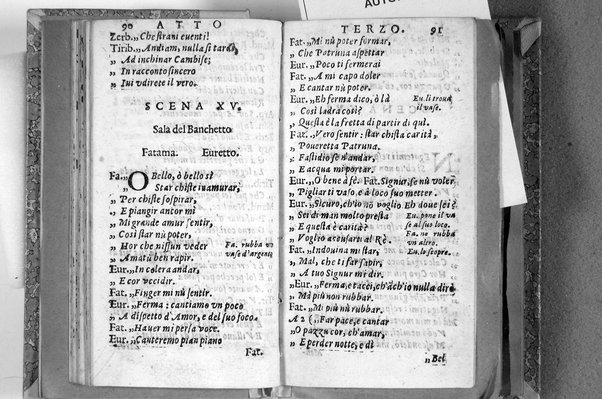 90 ATTO
Zerb. „Che strani euenti!
Tirib. „Andiam, nulla si tardi,
„Ad inchinar Cambise;
„In racconto sincero
„Iui vdirete il vero.
SCENA XV.
Sala del Banchetto
Fatama. Euretto.
Fa. „O Bello, ò bello sì
„Star chiste inamurar,
„Per chiste sospirar,
„E piangir ancor mi
„Mi grande amur sentir,
„Così star nù poter,
„Hor che nissun veder Fa. rubba vn
„Amatu ben rapir. vaso d'argento
Eur. „In colera andar,
„E cor vccidir.
Fat. „Finger mi nù sentir.
Eur. „Ferma: cantiamo vn poco
„A dispetto d'Amor, e del suo foco.
Fat. „Hauer mi persa voce.
Eur. „Canteremo pian piano
Fat.
TERZO. 91
Fat. „Mi nù poter formar,
„Che Patruna aspettar
Eur. „Poco ti fermerai
Fat. „A mi capo doler
„E cantar nù poter.
Eur. „Eh ferma dico, ò là Eu. li troua
„Così ladra così? il vaso.
„Questa è la fretta di partir di quì.
Fat. „Vero sentir: star chista carità,
„Poueretta Patruna.
„Fastidio se n'andar,
„E acqua mi portar.
Eur. „O bene à fè. Fat. Signur, se nù voler
„Pigliarti vaso, e à loco suo metter.
Eur. „Sicuro, ch'io nò voglio Eh doue sei?
„Sei di man molto presta Eu. pone il va
„E questa è carità? se al suo loco.
„Voglio accusarti al Rè. Fa. ne rubba
vn altro.
Fat. „Indouina mi star, Eu. lo scopre.
„Mal, che ti far sapir,
„A tuo Signur mi dir.
„Eur. „Ferma, e tacci, ch'ach'io nulla dirò
„Mà più non rubbar.
Fat. „Mi più nù rubbar.
A 2 { „Far pace, e cantar
„O pazzu cor, ch'amar,
„E perder notte, e dì
„Bel